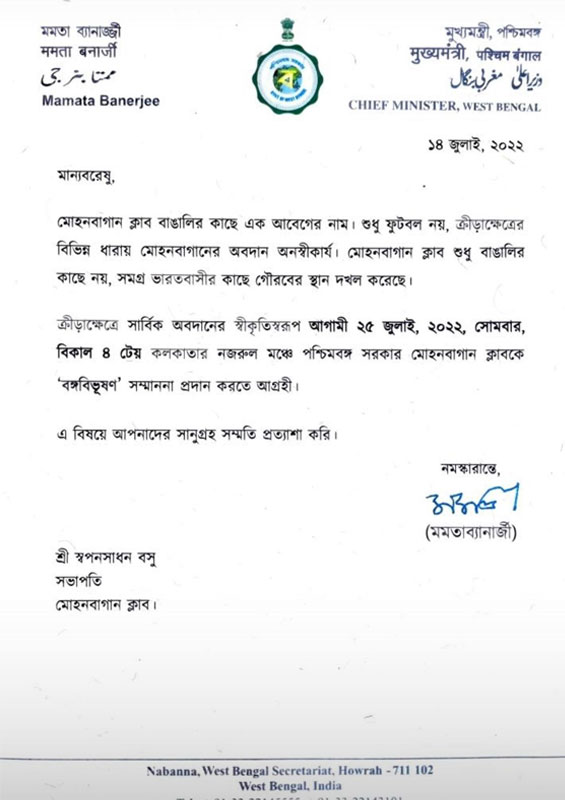 মমতা ব্যানার্জ্জী
ममता बनार्जी
ممتا بنرجی
Mamata Banerjee
মুখ্যমন্ত্রী, পশ্চিমবঙ্গ
मुख्यमंत्री, पश्चिम बंगाल
وزیر اعلیٰ مغربی بنگال
CHIEF MINISTER, WEST BENGAL
১৪ জুলাই, ২০২২
মান্যবরেষু,
মোহনবাগান ক্লাব বাঙালির কাছে এক আবেগের নাম। শুধু ফুটবল নয়, ক্রীড়াক্ষেত্রের
বিভিন্ন ধারায় মোহনবাগানের অবদান অনস্বীকার্য। মোহনবাগান ক্লাব শুধু বাঙালির
কাছে নয়, সমগ্র ভারতবাসীর কাছে গৌরবের স্থান দখল করেছে।
ক্রীড়াক্ষেত্রে সার্বিক অবদানের স্বীকৃতিস্বরূপ আগামী ২৫ জুলাই, ২০২২, সোমবার,
বিকাল ৪ টেয় কলকাতার নজরুল মঞ্চে পশ্চিমবঙ্গ সরকার মোহনবাগান ক্লাবকে
‘বঙ্গবিভূষণ’ সম্মাননা প্রদান করতে আগ্রহী।
এ বিষয়ে আপনাদের সানুগ্রহ সম্মতি প্রত্যাশা করি।
নমস্কারান্তে,
(মমতাব্যানার্জী)
শ্রী স্বপনসাধন বসু
সভাপতি
মোহনবাগান ক্লাব।
Nabanna, West Bengal Secretariat, Howrah - 711 102
West Bengal, India